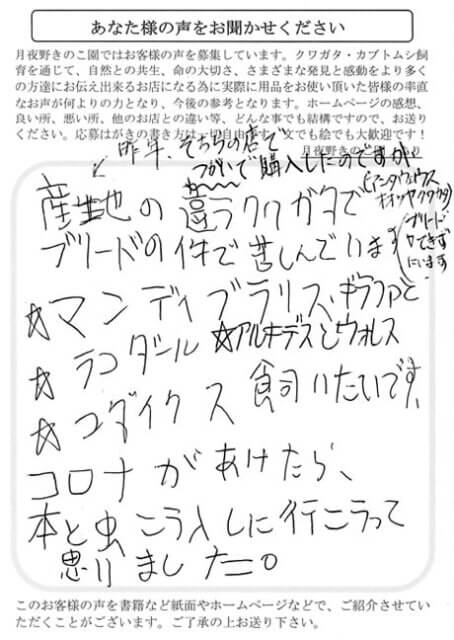 あなた様の声をお聞かせください
月夜野きのこ園ではお客様の声を募集しています。クワガタ・カブトムシ飼
育を通じて、自然との共生、命の大切さ、さまざまな発見と感動をより多く
の方達にお伝え出来るお店になる為に実際に用品をお使い頂いた皆様の率直
なお声が何よりの力となり、今後の参考となります。ホームページの感想、
良い所、悪い所、他のお店との違い等、どんな事でも結構ですので、お送り
ください。応募はがきの書き方は一切自由です！文でも絵でも大歓迎です！
月夜野きの
昨年、そちらの店で
つがいで購入したのですが
産地の違うクワガタで
(アンタウェウス
オオツヤクワガタ)
ブリードの件で苦しんでいます
(ブリード
できず
にいます
☆マンディブラリス、ギラファと
☆ラコダール ☆アルキデスとウォレス
☆コダイクス 飼いたいです。
コロナがあけたら、
本と虫こう入しに行こうって
思いました。
このお客様の声を書籍など紙面やホームページなどで、ご紹介させてい
ただくことがございます。ご了承の上お送り下さい。